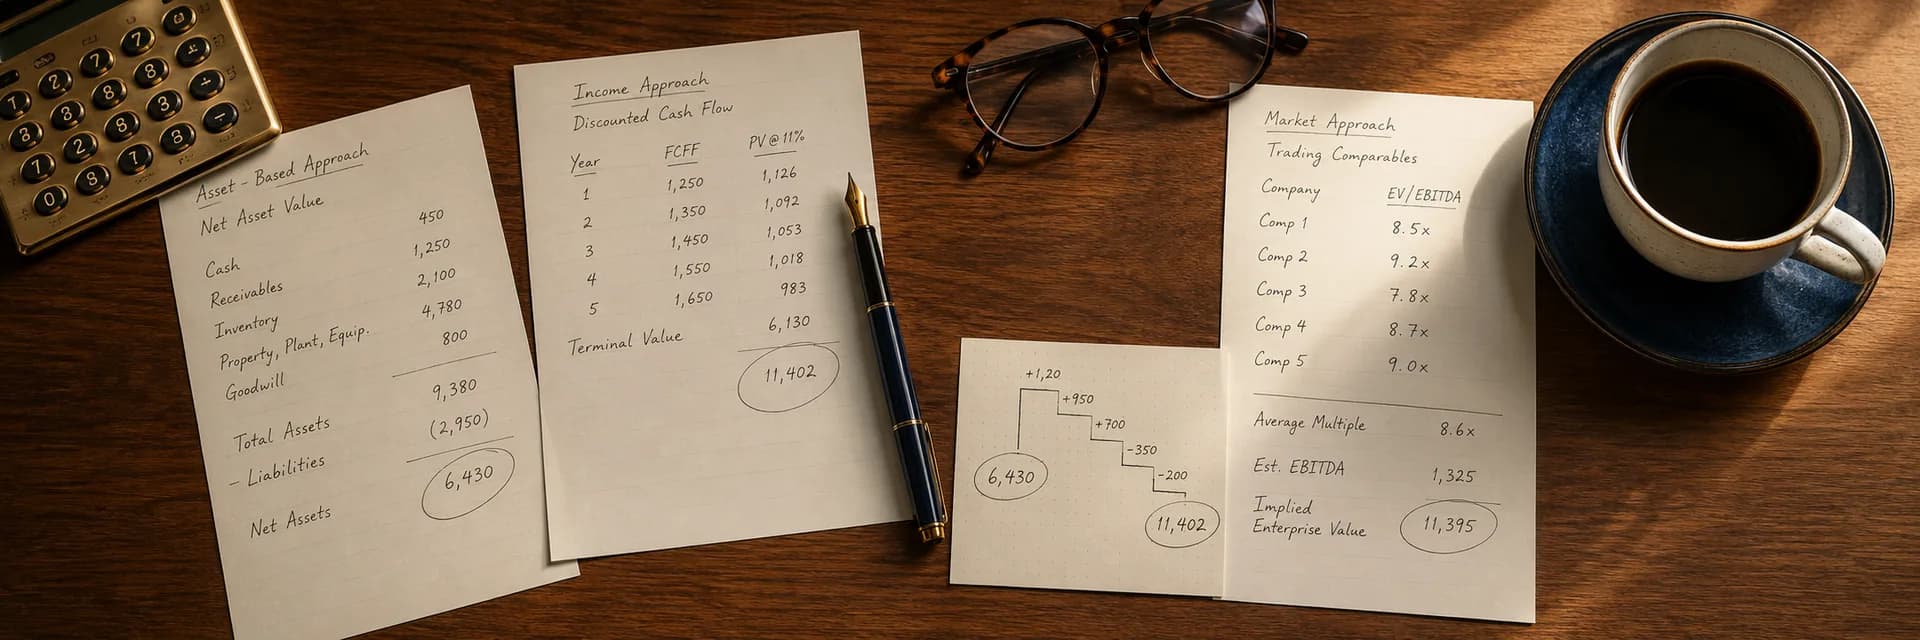 Asset-Based Approach
Net Asset Value
Cash 450
Receivables 1,250
Inventory 2,100
Property, Plant, Equip. 4,780
Goodwill 800
Total Assets 9,380
– Liabilities (2,950)
Net Assets 6,430
Income Approach
Discounted Cash Flow
Year FCFF PV@11%
1 1,250 1,126
2 1,350 1,092
3 1,450 1,053
4 1,550 1,018
5 1,650 983
Terminal Value 6,130
11,402
+1,20
+950
+700
-350
-200
6,430
11,402
Market Approach
Trading Comparables
Company EV/EBITDA
Comp 1 8.5x
Comp 2 9.2x
Comp 3 7.8x
Comp 4 8.7x
Comp 5 9.0x
Average Multiple 8.6x
Est. EBITDA 1,325
Implied
Enterprise Value 11,395